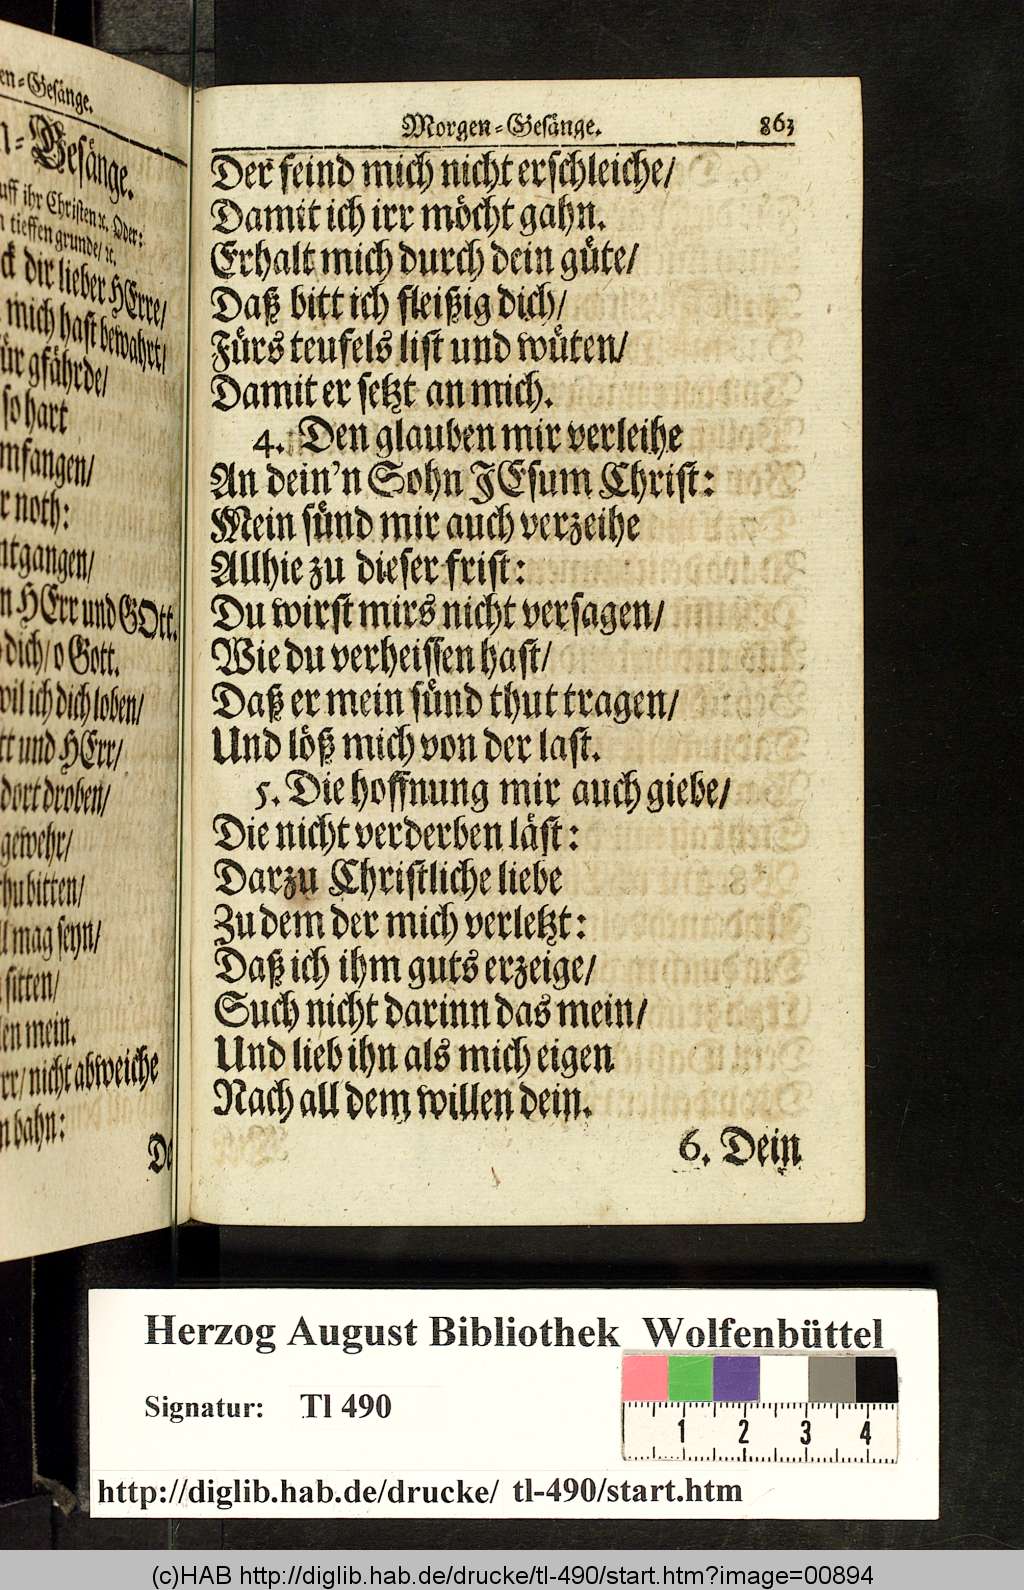 en-Gesänge.
n-Gesänge.
uff ihr Christen ꝛc. Oder:
n tieffen grunde/ ꝛc.
ck dir lieber HErre/
mich hast bewahrt/
ür gfährde/
so hart
mfangen/
r noth:
ntgangen/
n HErr und GOtt.
dich/ o Gott.
wil ich dich loben/
tt und HErr/
dort droben/
gewehr/
thu bitten/
ll mag seyn/
sitten/
len mein.
rr/ nicht abweiche
n bahn:
De
Morgen-Gesänge. 863
Der feind mich nicht erschleiche/
Damit ich irr möcht gahn.
Erhalt mich durch dein güte/
Daß bitt ich fleißig dich/
Fürs teufels list und wüten/
Damit er setzt an mich.
4. Den glauben mir verleihe
An dein'n Sohn JEsum Christ:
Mein sünd mir auch verzeihe
Allhie zu dieser frist:
Du wirst mirs nicht versagen/
Wie du verheissen hast/
Daß er mein sünd thut tragen/
Und löß mich von der last.
5. Die hoffnung mir auch giebe/
Die nicht verderben läst:
Darzu Christliche liebe
Zu dem der mich verletzt:
Daß ich ihm guts erzeige/
Such nicht darinn das mein/
Und lieb ihn als mich eigen
Nach all dem willen dein.
6. Dein
Herzog August Bibliothek Wolfenbüttel
Signatur: Tl 490
1 2 3 4
http://diglib.hab.de/drucke/ tl-490/start.htm
(c)HAB http://diglib.hab.de/drucke/tl-490/start.htm?image=00894